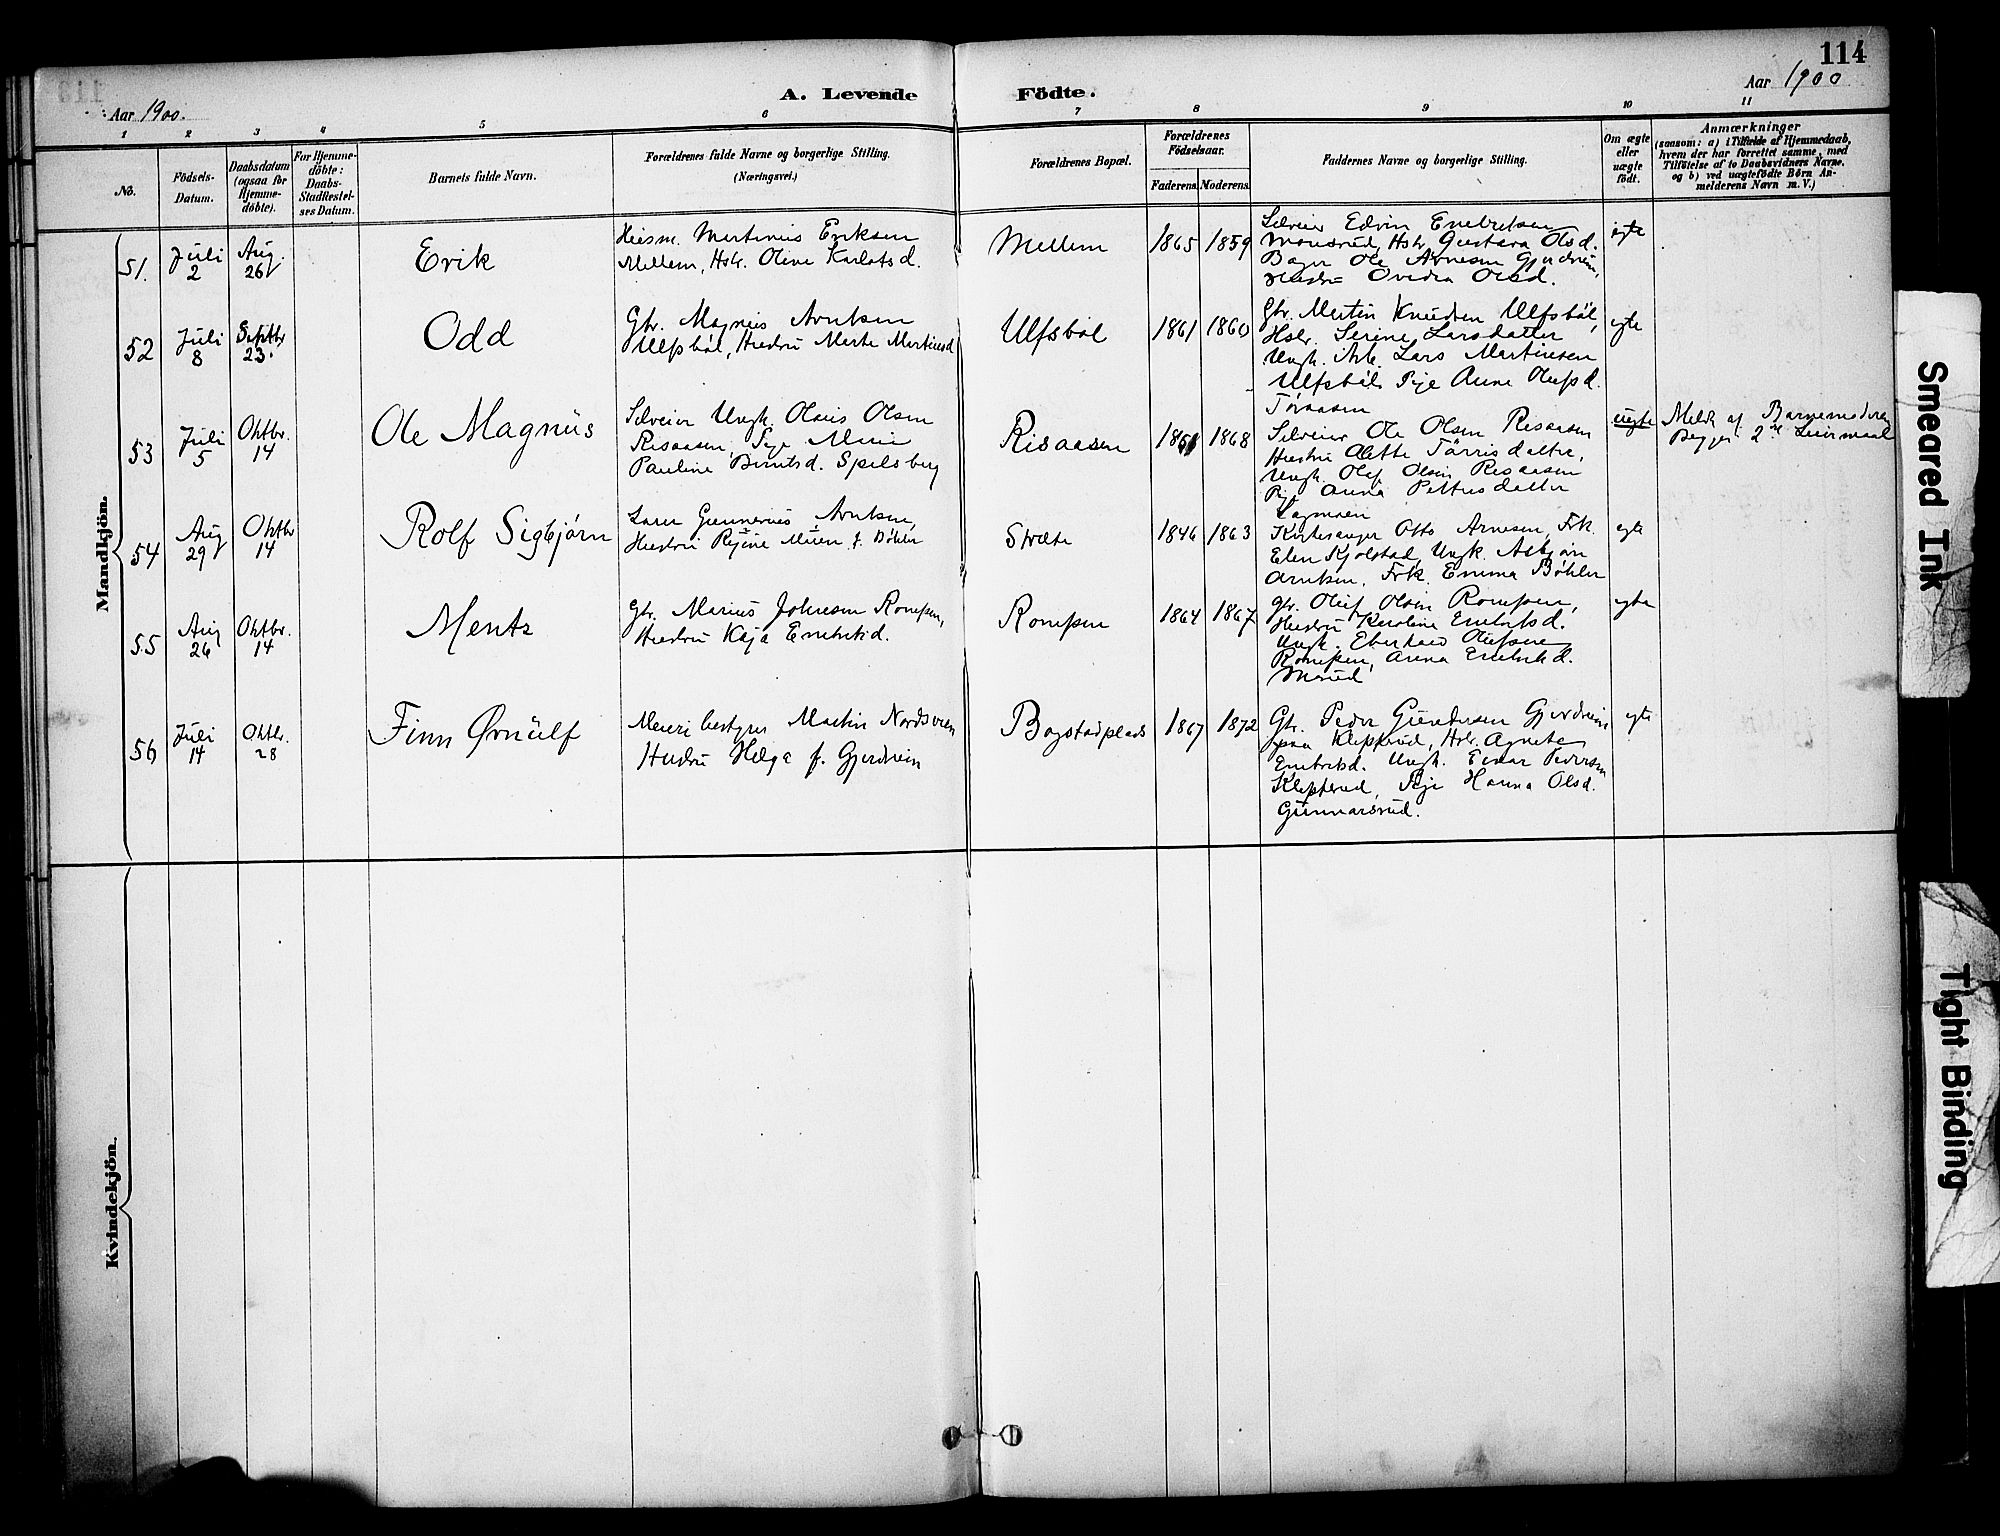 114
Aar 1900.
A. Levende Födte.
Aar 1900
1 2 3 4 5 6 7 8 9 10 11
No.
Födsels-
Datum.
Daabsdatum
(ogsaa for
Hjemme-
døbte).
For Hjemme-
döbte:
Daabs-
Stadfæstel-
ses Datum.
Barnets fulde Navn.
Forældrenes fulde Navne og borgerlige Stilling.
(Næringsvei.)
Forældrenes Bopæl.
Forældrenes
Födselsaar.
Faderens. Moderens.
Faddernes Navne og borgerlige Stilling.
Om ægte
eller
uægte
født.
Anmærkninger
(saasom: a) i Tilfælde af Hjemmedaab,
hvem der har forrettet samme, med
Tilføielse af to Daabsvidners Navne,
og b) ved uægtefødte Børn An-
melderens Navn m. V.)
Mandkjön.
51.
Juli
2
Aug.
26
Erik
Husm. Martinius Eriksen
Mellem, Hstr. Oline Karlotsd.
Mellem
1865 1859
Selveier Edvin Enebretsen
Monsrud, Hstr. Gustava Olsd.
Bager Ole Arnesen Gjerdrein,
Hustru Ovedia Olsd.
ægte
52
Juli
8
Septbr
23.
Odd
Gbr. Magnus Arntsen
Ulfsböl, Hustru Marte Martinsd
Ulfsböl
1861 1860
Gbr. Martin Knudsen Ulfsböl,
Hstr. Serine Larsdatter
Ungk. Arb. Lars Martinsen
Ulfsböl Pige Anne Olufsd.
Töraasen
ægte
53
Juli
5
Oktbr.
14
Ole Magnus
Selveier Ungk. Olaus Olsen
Risaasen, Pige
Pauline Berntsd. Spelsberg
Risaasen
1868
Selveier Ole Olsen Risaasen
Hustru Olette Törrisdatter,
Ungk. Olaf Olsen Risaasen
Pige Anna Pettersdatter
Lagmoen
uægte
Meldt af Barnemoderen
Begges 2det Leiermaal
54
Aug
29
Oktbr
14
Rolf Sigbjørn
Lærer Gunnerius Arntsen,
Hustru Regine f. Bøhler
Stræte
1846 1863
Kirkesanger Otto Arnesen, Frk.
Elen Kjölstad, Ungk. Asbjørn
Arntsen, Frk. Emma Bøhler
ægte
55
Aug
26
Oktbr.
14
Mentz
Gbr. Marius Johnesen Romsen,
Hustru Kaja Enebretsd.
Romsen
1864 1867
Gbr. Oluf Olsen Romsen,
Hustru Karoline
Ungk. Eberhard Olufsen
Romsen, Anna Enebretsd.
ægte
56
Juli
14
Oktbr.
28
Finn Ørnulf
Meieribestyrer Martin Nordsveen
Hustru Helga f. Gjerdrein
Bagstadplads
1867 1872
Gbr. Peder Gundersen Gjerdrein
paa Klepprud, Hstr. Agnete
Enebretsd. Ungk. Einar Pedersen
Klepprud, Pige Hanna Olsd.
Gunnarsrud.
ægte
Kvindekjön.
Smeared Ink
Tight Binding